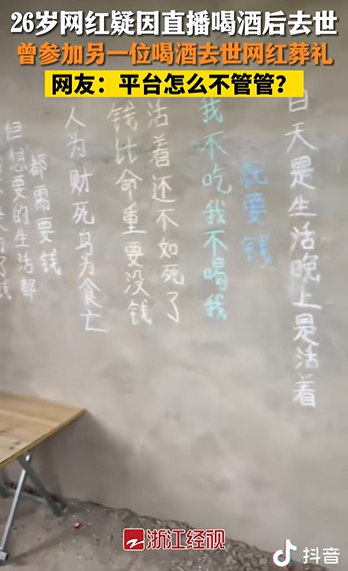 26岁网红疑因直播喝酒后去世
曾参加另一位喝酒去世网红葬礼
网友：平台怎么不管管？
白天是生活晚上是活着
就要钱
我不吃我不喝我
活着还不如死了
钱比命重要没钱
人为财死鸟为食亡
都需要钱
但想要的生活都
浙江经视
抖音